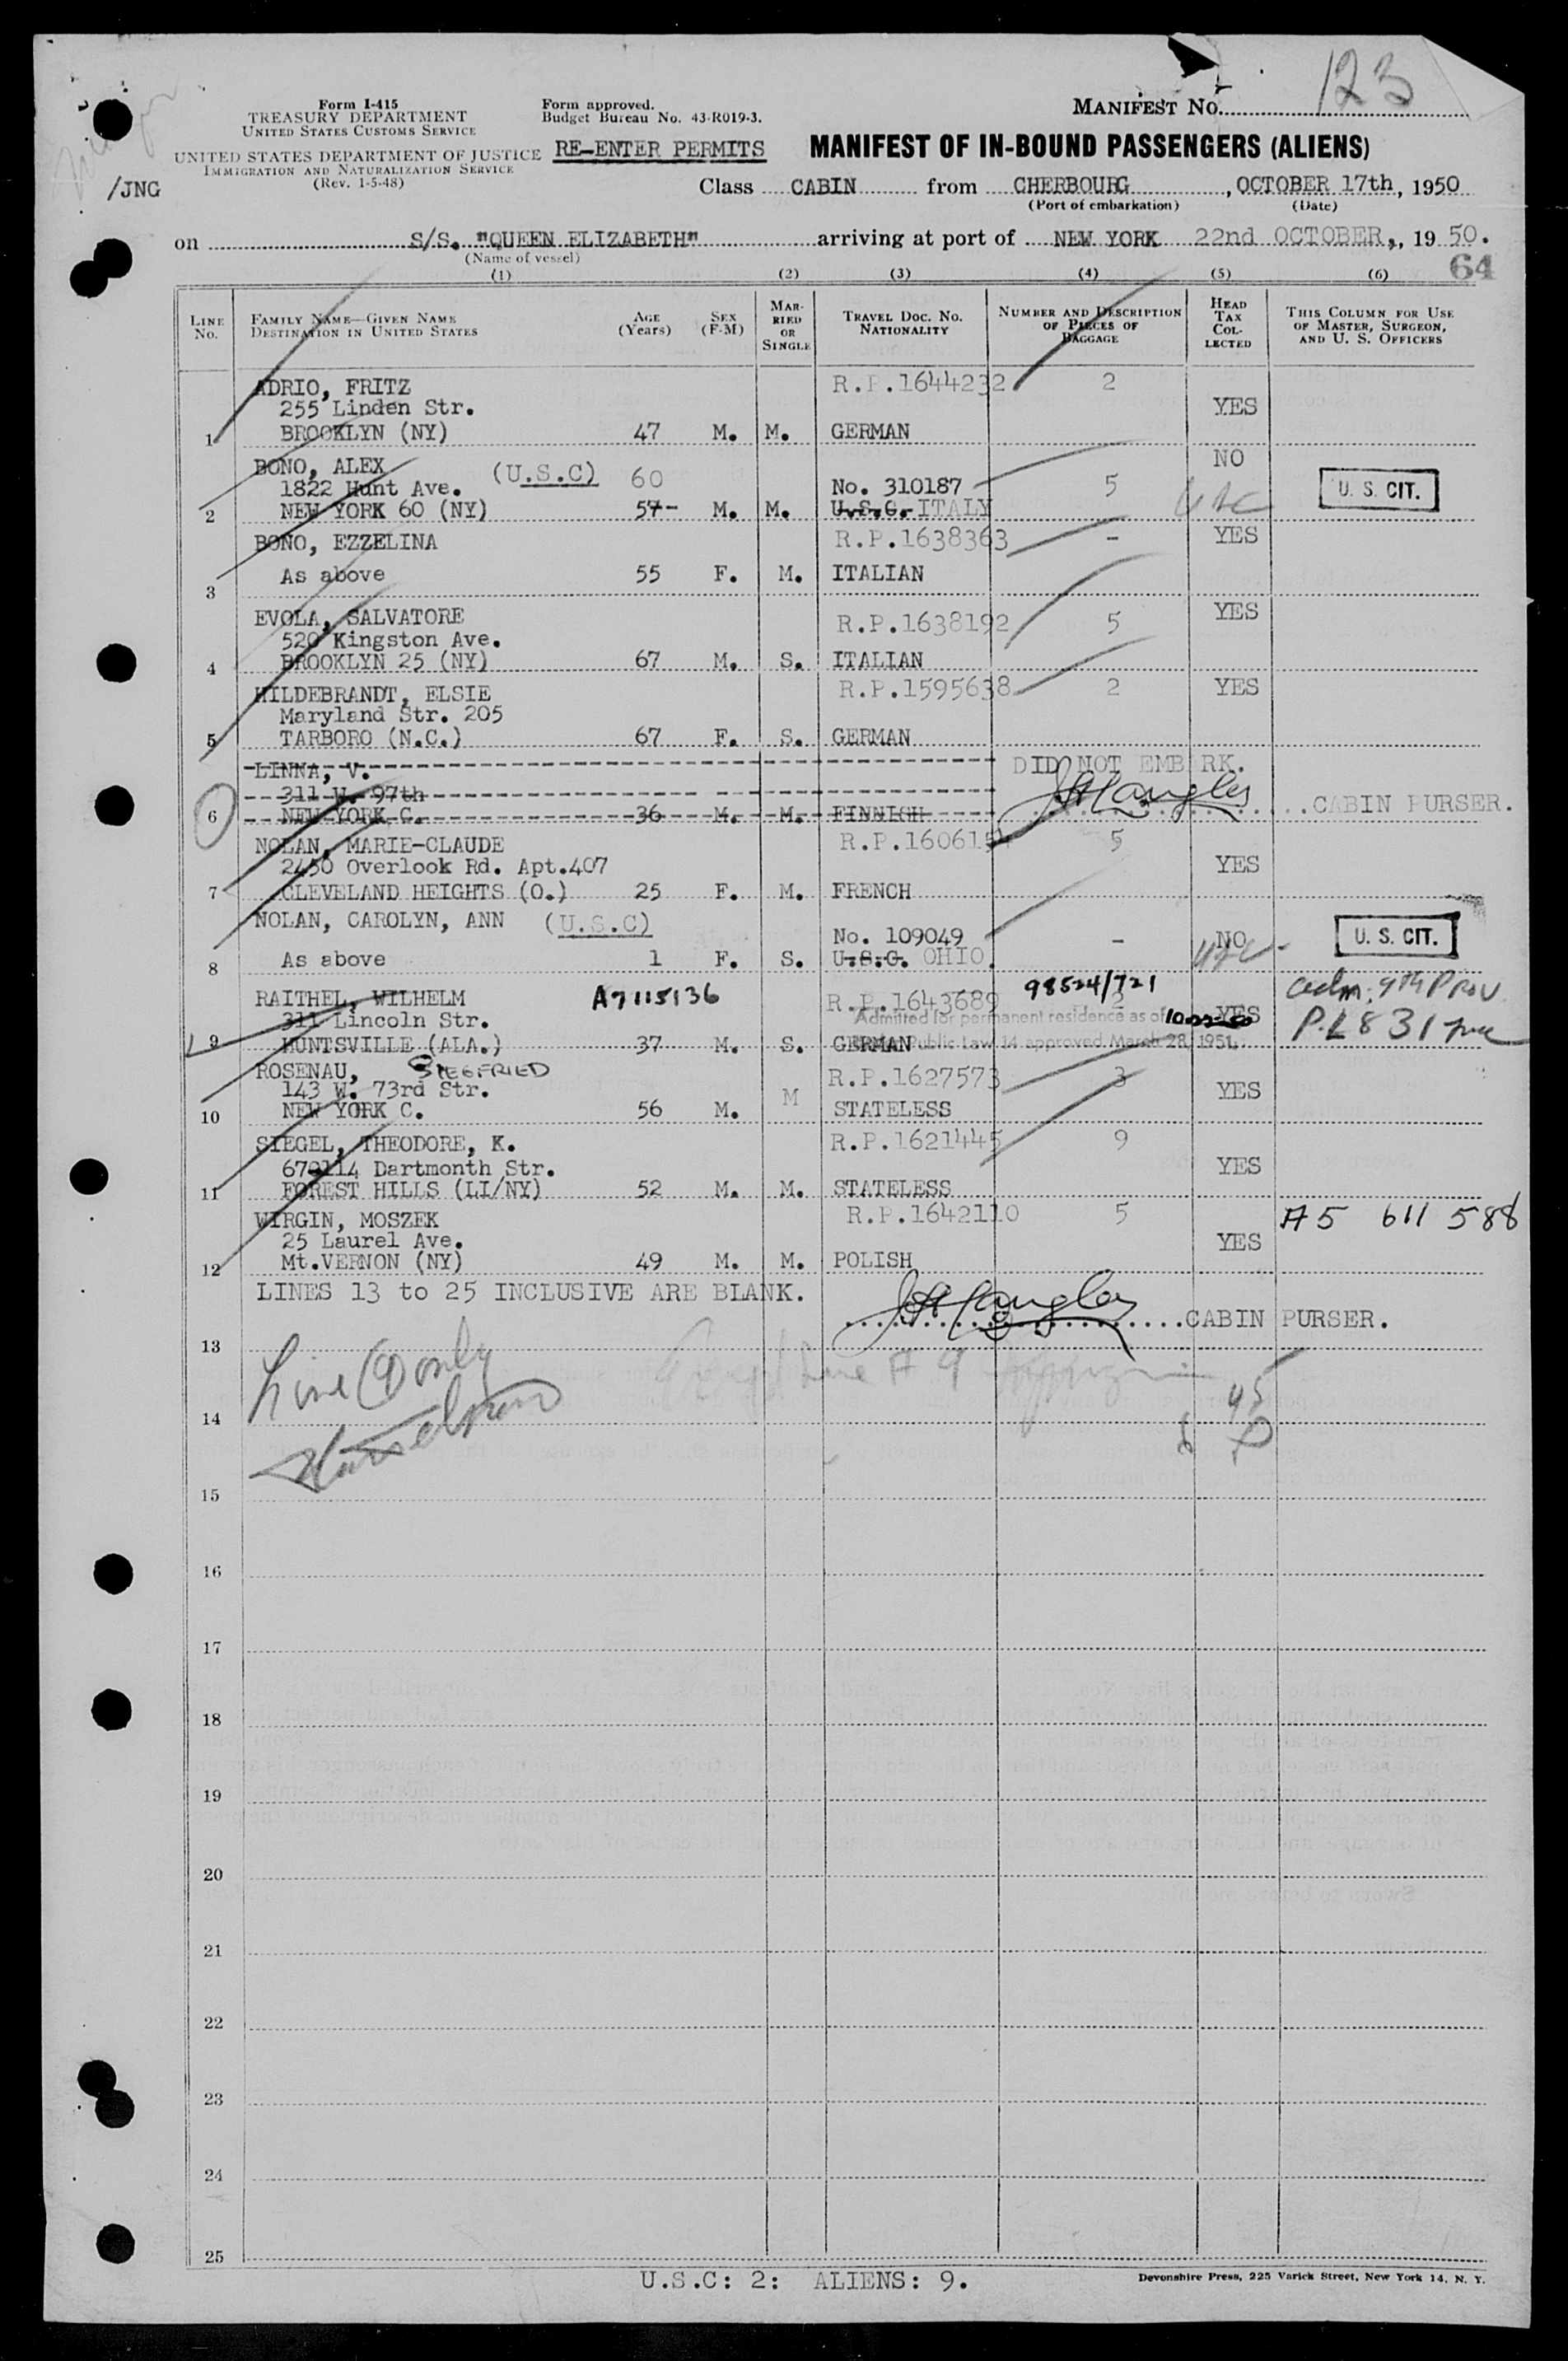 123
Form I-415
TREASURY DEPARTMENT
UNITED STATES CUSTOMS SERVICE
Form approved.
Budget Bureau No. 43-R019-3.
MANIFEST No.
UNITED STATES DEPARTMENT OF JUSTICE
IMMIGRATION AND NATURALIZATION SERVICE
(Rev. 1-5-48)
RE-ENTER PERMITS
MANIFEST OF IN-BOUND PASSENGERS (ALIENS)
/JNG
Class CABIN from CHERBOURG, OCTOBER 17th, 1950
(Port of embarkation) (Date)
on S/S. "QUEEN ELIZABETH" arriving at port of NEW YORK 22nd OCTOBER., 19 50.
(Name of vessel)
64
(1) (2) (3) (4) (5) (6)
LINE No.
FAMILY NAME—GIVEN NAME
DESTINATION IN UNITED STATES
AGE (Years)
SEX (F-M)
MARRIED OR SINGLE
TRAVEL DOC. NO. NATIONALITY
NUMBER AND DESCRIPTION OF PIECES OF BAGGAGE
HEAD TAX COLLECTED
THIS COLUMN FOR USE OF MASTER, SURGEON, AND U. S. OFFICERS
ADRIO, FRITZ R.P.1644232 2
255 Linden Str. YES
1 BROOKLYN (NY) 47 M. M. GERMAN
BONO, ALEX (U.S.C) 60 NO
1822 Hunt Ave. No. 310187 5 U. S. CIT.
2 NEW YORK 60 (NY) 57- M. M. U.S.C. ITALY USC
BONO, EZZELINA R.P.1638363 - YES
3 As above 55 F. M. ITALIAN
EVOLA, SALVATORE R.P.1638192 5 YES
520 Kingston Ave.
4 BROOKLYN 25 (NY) 67 M. S. ITALIAN
HILDEBRANDT, ELSIE R.P.1595638 2 YES
Maryland Str. 205
5 TARBORO (N.C.) 67 F. S. GERMAN
LINNA, V. DID NOT EMBARK.
311 W. 97th
6 NEW YORK C. 36 M. M. FINNISH CABIN PURSER.
NOLAN, MARIE-CLAUDE R.P.160615 5
2450 Overlook Rd. Apt.407 YES
7 CLEVELAND HEIGHTS (O.) 25 F. M. FRENCH
NOLAN, CAROLYN, ANN (U.S.C) No. 109049 - NO U. S. CIT.
8 As above 1 F. S. U.S.C. OHIO. USC
RAITHEL, WILHELM A7115136 R.P.1643689 98524/721 2 adm. 9th Prov
311 Lincoln Str. Admitted for permanent residence as of 10-22-50 YES P.L 831
9 HUNTSVILLE (ALA.) 37 M. S. GERMAN Public Law 14 approved March 28, 1951.
ROSENAU, SIEGFRIED R.P.1627573 3
143 W. 73rd Str. M YES
10 NEW YORK C. 56 M. STATELESS
SIEGEL, THEODORE, K. R.P.1621445 9
670114 Dartmonth Str. YES
11 FOREST HILLS (LI/NY) 52 M. M. STATELESS
WIRGIN, MOSZEK R.P.1642110 5 A5 611 588
25 Laurel Ave. YES
12 Mt.VERNON (NY) 49 M. M. POLISH
LINES 13 to 25 INCLUSIVE ARE BLANK.
CABIN PURSER.
13
Line 9 only
14
15
16
17
18
19
20
21
22
23
24
25
U.S.C: 2: ALIENS: 9.
Devonshire Press, 225 Varick Street, New York 14, N. Y.